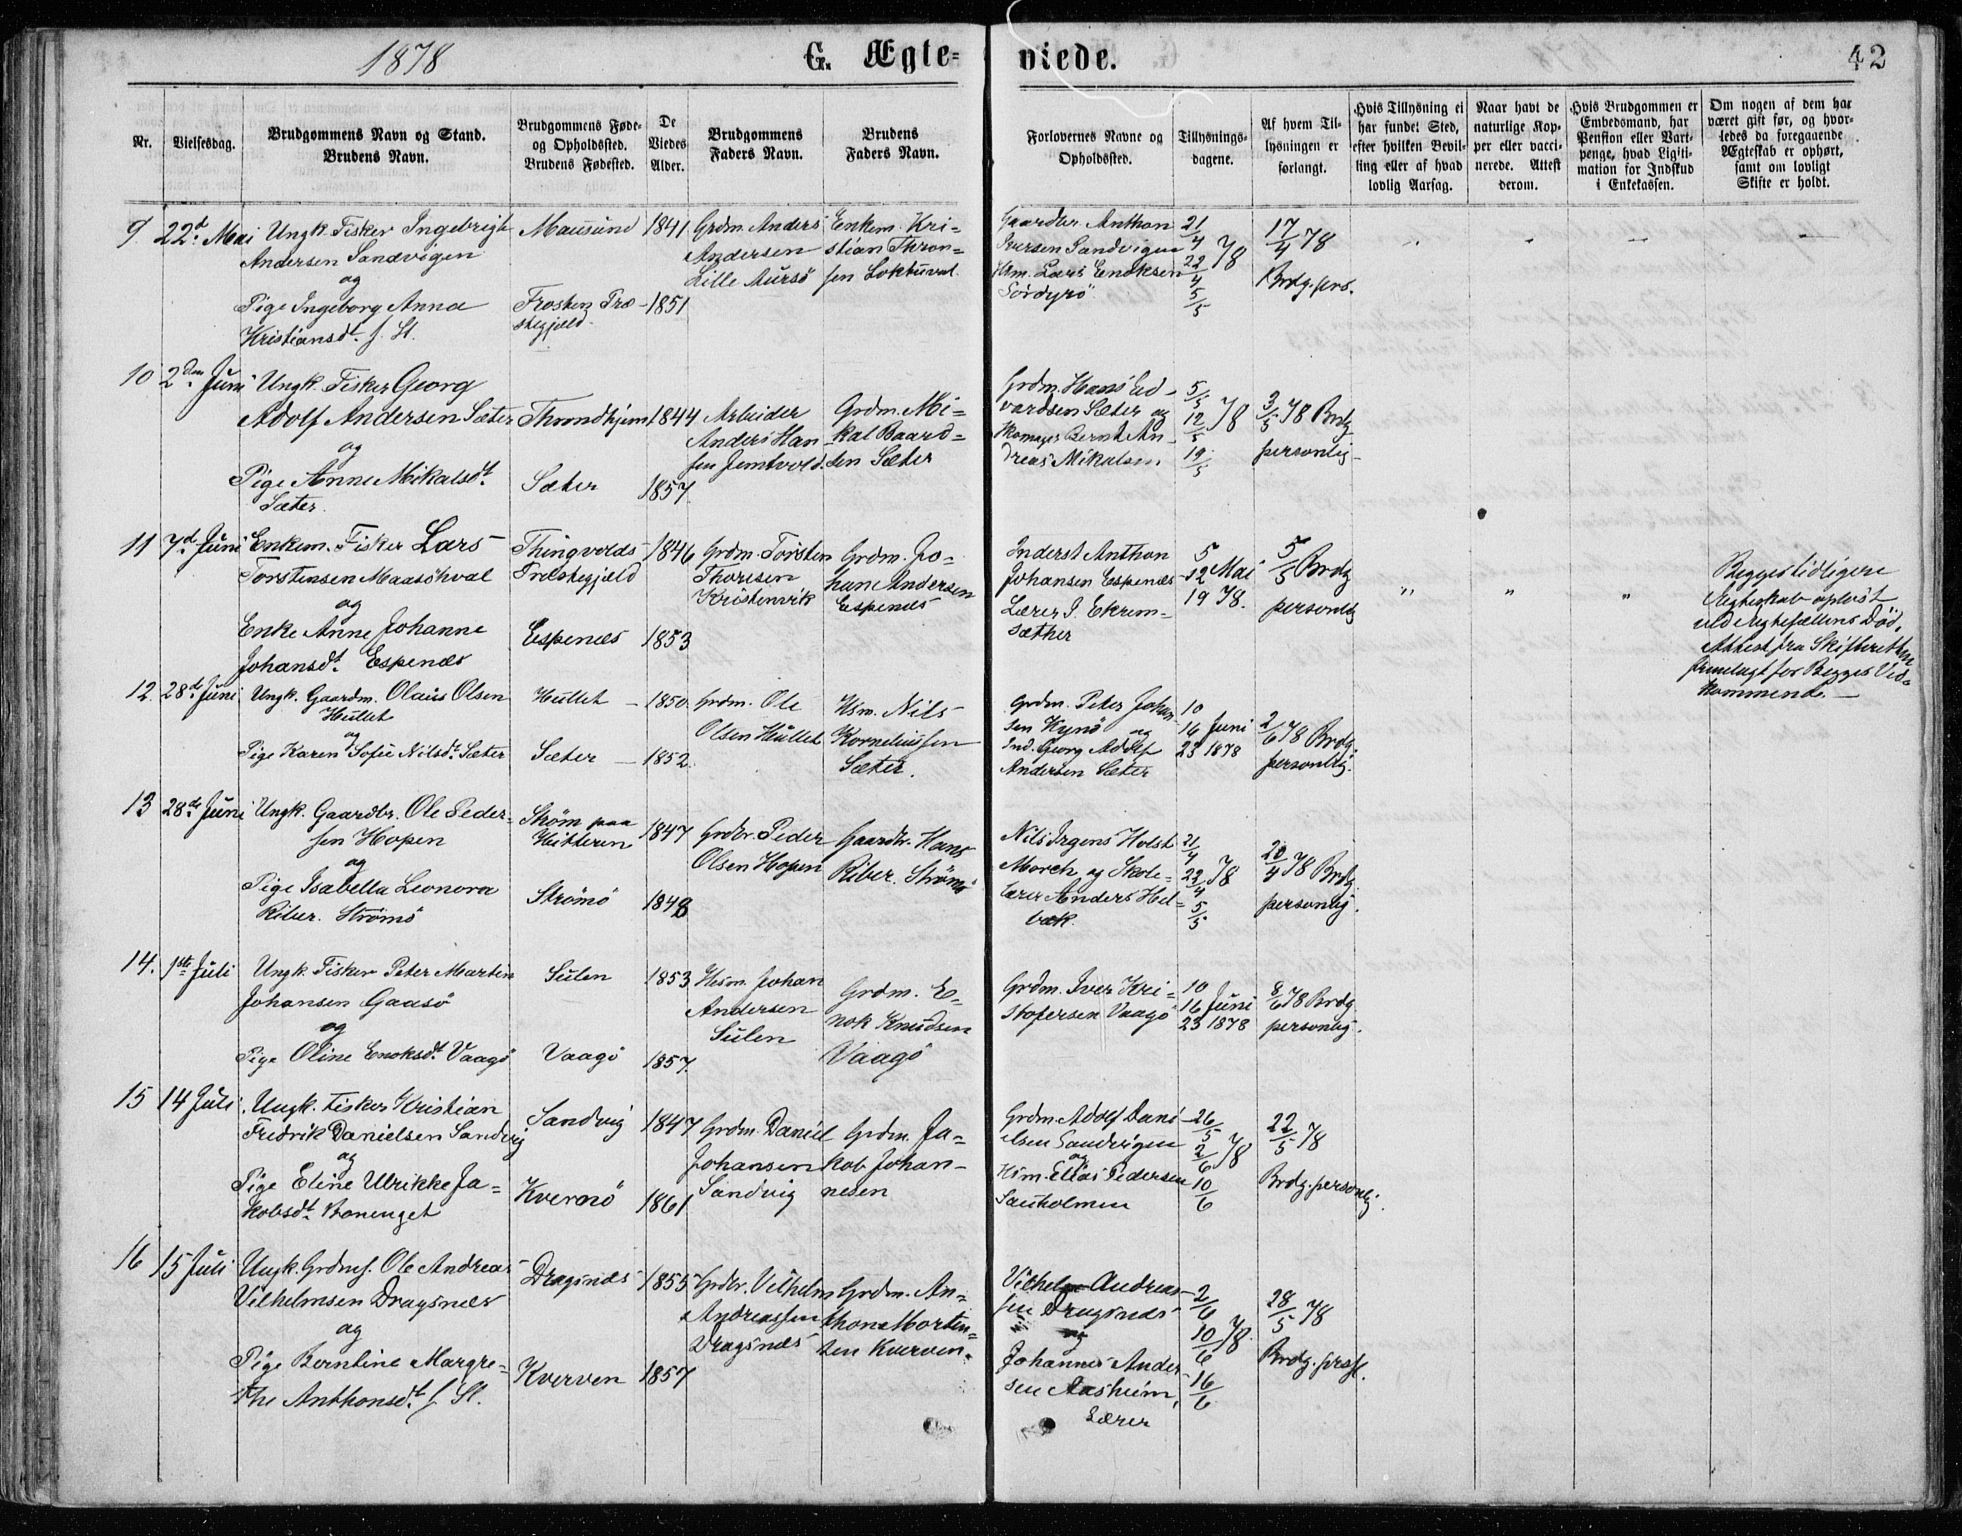 1878
G. Ægte-
viede.
42
Nr.
Vielsesdag.
Brudgommens Navn og Stand.
Brudens Navn.
Brudgommens Føde-
og Opholdsted.
Brudens Fødested.
De
Viedes
Alder.
Brudgommens
Faders Navn.
Brudens
Faders Navn.
Forlovernes Navne og
Opholdsted.
Tillysnings-
dagene.
Af hvem Til-
lysningen er
forlangt.
Hvis Tillysning ei
har fundet Sted,
efter hvilken Bevil-
ling eller af hvad
lovlig Aarsag.
Naar havt de
naturlige Kop-
per eller vacci-
nerede. Attest
derom.
Hvis Brudgommen er
Embedsmand, har
Pension eller Vart-
penge, hvad Ligiti-
mation for Indskud
i Enkekassen.
Om nogen af dem har
været gift før, og hvor-
ledes da foregaaende
Ægteskab er ophørt,
samt om lovligt
Skifte er holdt.
9. 22d. Mai
Ungk. Fisker Ingebrigt
Andersen Sandvigen
og
Pige Ingeborg Anna
Kristiansdt. f. St.
Mausund
Frosten Præ-
stegjeld
1841
1851
Grdm. Anders
Andersen
Lille Aursø
Enkem. Kri-
stian Thron-
sen
Gaardbr. Anthon
Iversen Sandvigen
Hsm. Lars Enoksen
Sørdyrø
21/4
22/4 78
5/5
17/4 78
Brdg. pers.
10 2den Juni
Ungk. Fisker Georg
Adolf Andersen Sæter
og
Pige Anne Mikalsdt.
Sæter.
Throndhjem
Sæter
1844
1857.
Arbeider
Anders Han-
sen
Grdm. Mi-
kal Baard-
sen Sæter
Grdm. Hans Ed-
vardsen Sæter og
Skomager Bernt An-
dreas Mikalsen
5/5
12/5 78
19/5
3/5 78 Brdg
personlig
11 7d. Juni
Enkem. Fisker Lars
Torstensen Maasøhval
og
Enke Anne Johanne
Johansdt. Espenæs
Thingvolds
Præstegjæld
Espenæs
1846
1853
Grdm. Torsten
Thoresen
Kristenvik
Grdm. Jo-
han Andersen
Espenæs
Inderst Anthon
Johansen Espenæs
Lærer I. Ekrem-
sæther
5
12 Mai
19 78.
5/5 Brdg
personlig
Begges tidligere
Ægteskab opløst
ved Ægtefællens Död.
Attest fra Skifteretten
fremlagt for Begges Ved-
kommende. —
12. 28d. Juni
Ungk. Gaardm. Olaus Olsen
Hullet
og
Pige Karen Sofie Nilsdt. Sæter
Hullet
Sæter
1850
1852.
Grdm. Ole
Olsen Hullet
Hsm. Nils
Korneliussen
Sæter.
Grdm. Peter Johan-
sen Kynø og
Ind. Georg Adolf
Andersen Sæter
10
16 Juni
23 1878
2/6 78 Brdg.
personlig.
13 28de Juni
Ungk. Gaardbr. Ole Peder-
sen Hopen
og
Pige Isabella Leonora
Riber. Strømø
Strøm paa
Hitteren
Strømø
1847
1848
Grdbr. Peder
Olsen Hopen
Gaardbr. Hans
Riber. Strømø
Nils Irgens Holst
Morch og Skole-
lærer Anders Hel-
bæk.
21/4
22/4 78
5/5
20/4 78 Brdg.
personlig.
14. 1ste Juli
Ungk. Fisker Peter Martin
Johansen Gaasø
og
Pige Oline Enoksdt. Vaagø
Sulen
Vaagø
1853
1857.
Husm. Johan
Andersen
Sulen
Grdm. E-
nok Knudsen
Vaagø
Grdm. Iver Kri-
stofersen Vaagø
10
16 Juni
23 1878
8/6 78 Brdg
personlig.
15 14 Juli
Ungk. Fisker Kristian
Fredrik Danielsen Sandvig
og
Pige Eline Ulrikke Ja-
kobsdt.
Sandvig
Kvernø
1847
1861
Grdm. Daniel
Johansen
Sandvig
Grdm. Ja-
kob Johan-
nesen
Grdm. Adolf Dani-
elsen Sandvigen
og
Hsm. Elias Pedersen
Sauholmen
26/5
2/6 78
10/6
22/5 78
Brdg. personlig.
16 15 Juli
Ungk. Grdmf. Ole Andreas
Vilhelmsen Dragsnæs
og
Pige Berntine Margre-
the Anthonsdt. f St.
Dragsnæs
Kverven
1855
1857
Grdbr. Vilhelm
Andreassen
Dragsnæs
Grdm. An-
thon Morten-
sen Kverven.
Vilhelm Andreas-
sen Dragsnæs
og
Johannes Ander-
sen Aasheim,
Lærer
2/6
10/6 78.
16/6
28/5 78
Brdg. prsl.